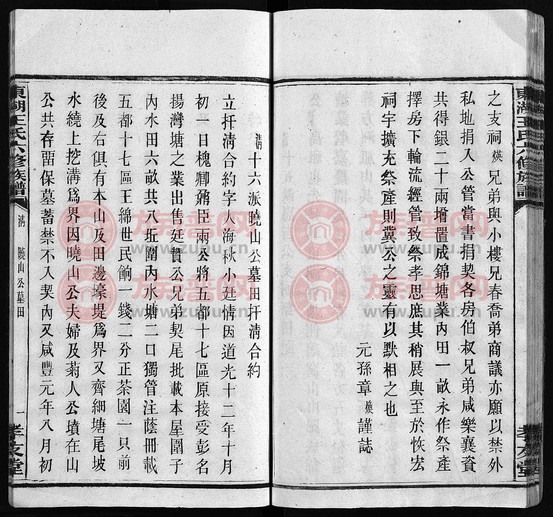 之支祠媖兄弟與小樓兄春喬弟商議亦願以禁外
私地捐入公管當書捐契各房伯叔兄弟咸樂襄資
共得銀二十兩增置成錦塘業內田一畝永作祭產
擇房下輪流經管致祭孝思庶其稍展與至於恢宏
祠宇擴充祭產則冀公之靈有以默相之也
元孫章媖謹誌
東湖王氏六修族譜
清
曉山公墓田
一
孝友堂
清十六派曉山公墓田扞清合約
立扞清合約字人海秋小廷情因道光十二年十月
初一日槐卿
臣兩公將五都十七區原接受彭名
揚灣塘之業出售廷貫公兄弟契尾批載本屋圍子
內水田六畝共八坵圍內水塘二口獨管注蔭冊載
五都十七區王綿世民餉一錢二分正茶園一只前
後及右俱有本山及田邊壕堤為界又齊細塘尾坡
水繞上挖溝為界因曉山公夫婦及菊人公墳在山
公共存畱保墓蓄禁不入契內又咸豐元年八月初
東湖王氏六修族譜
孝友堂
族譜網
www.zupu.cn